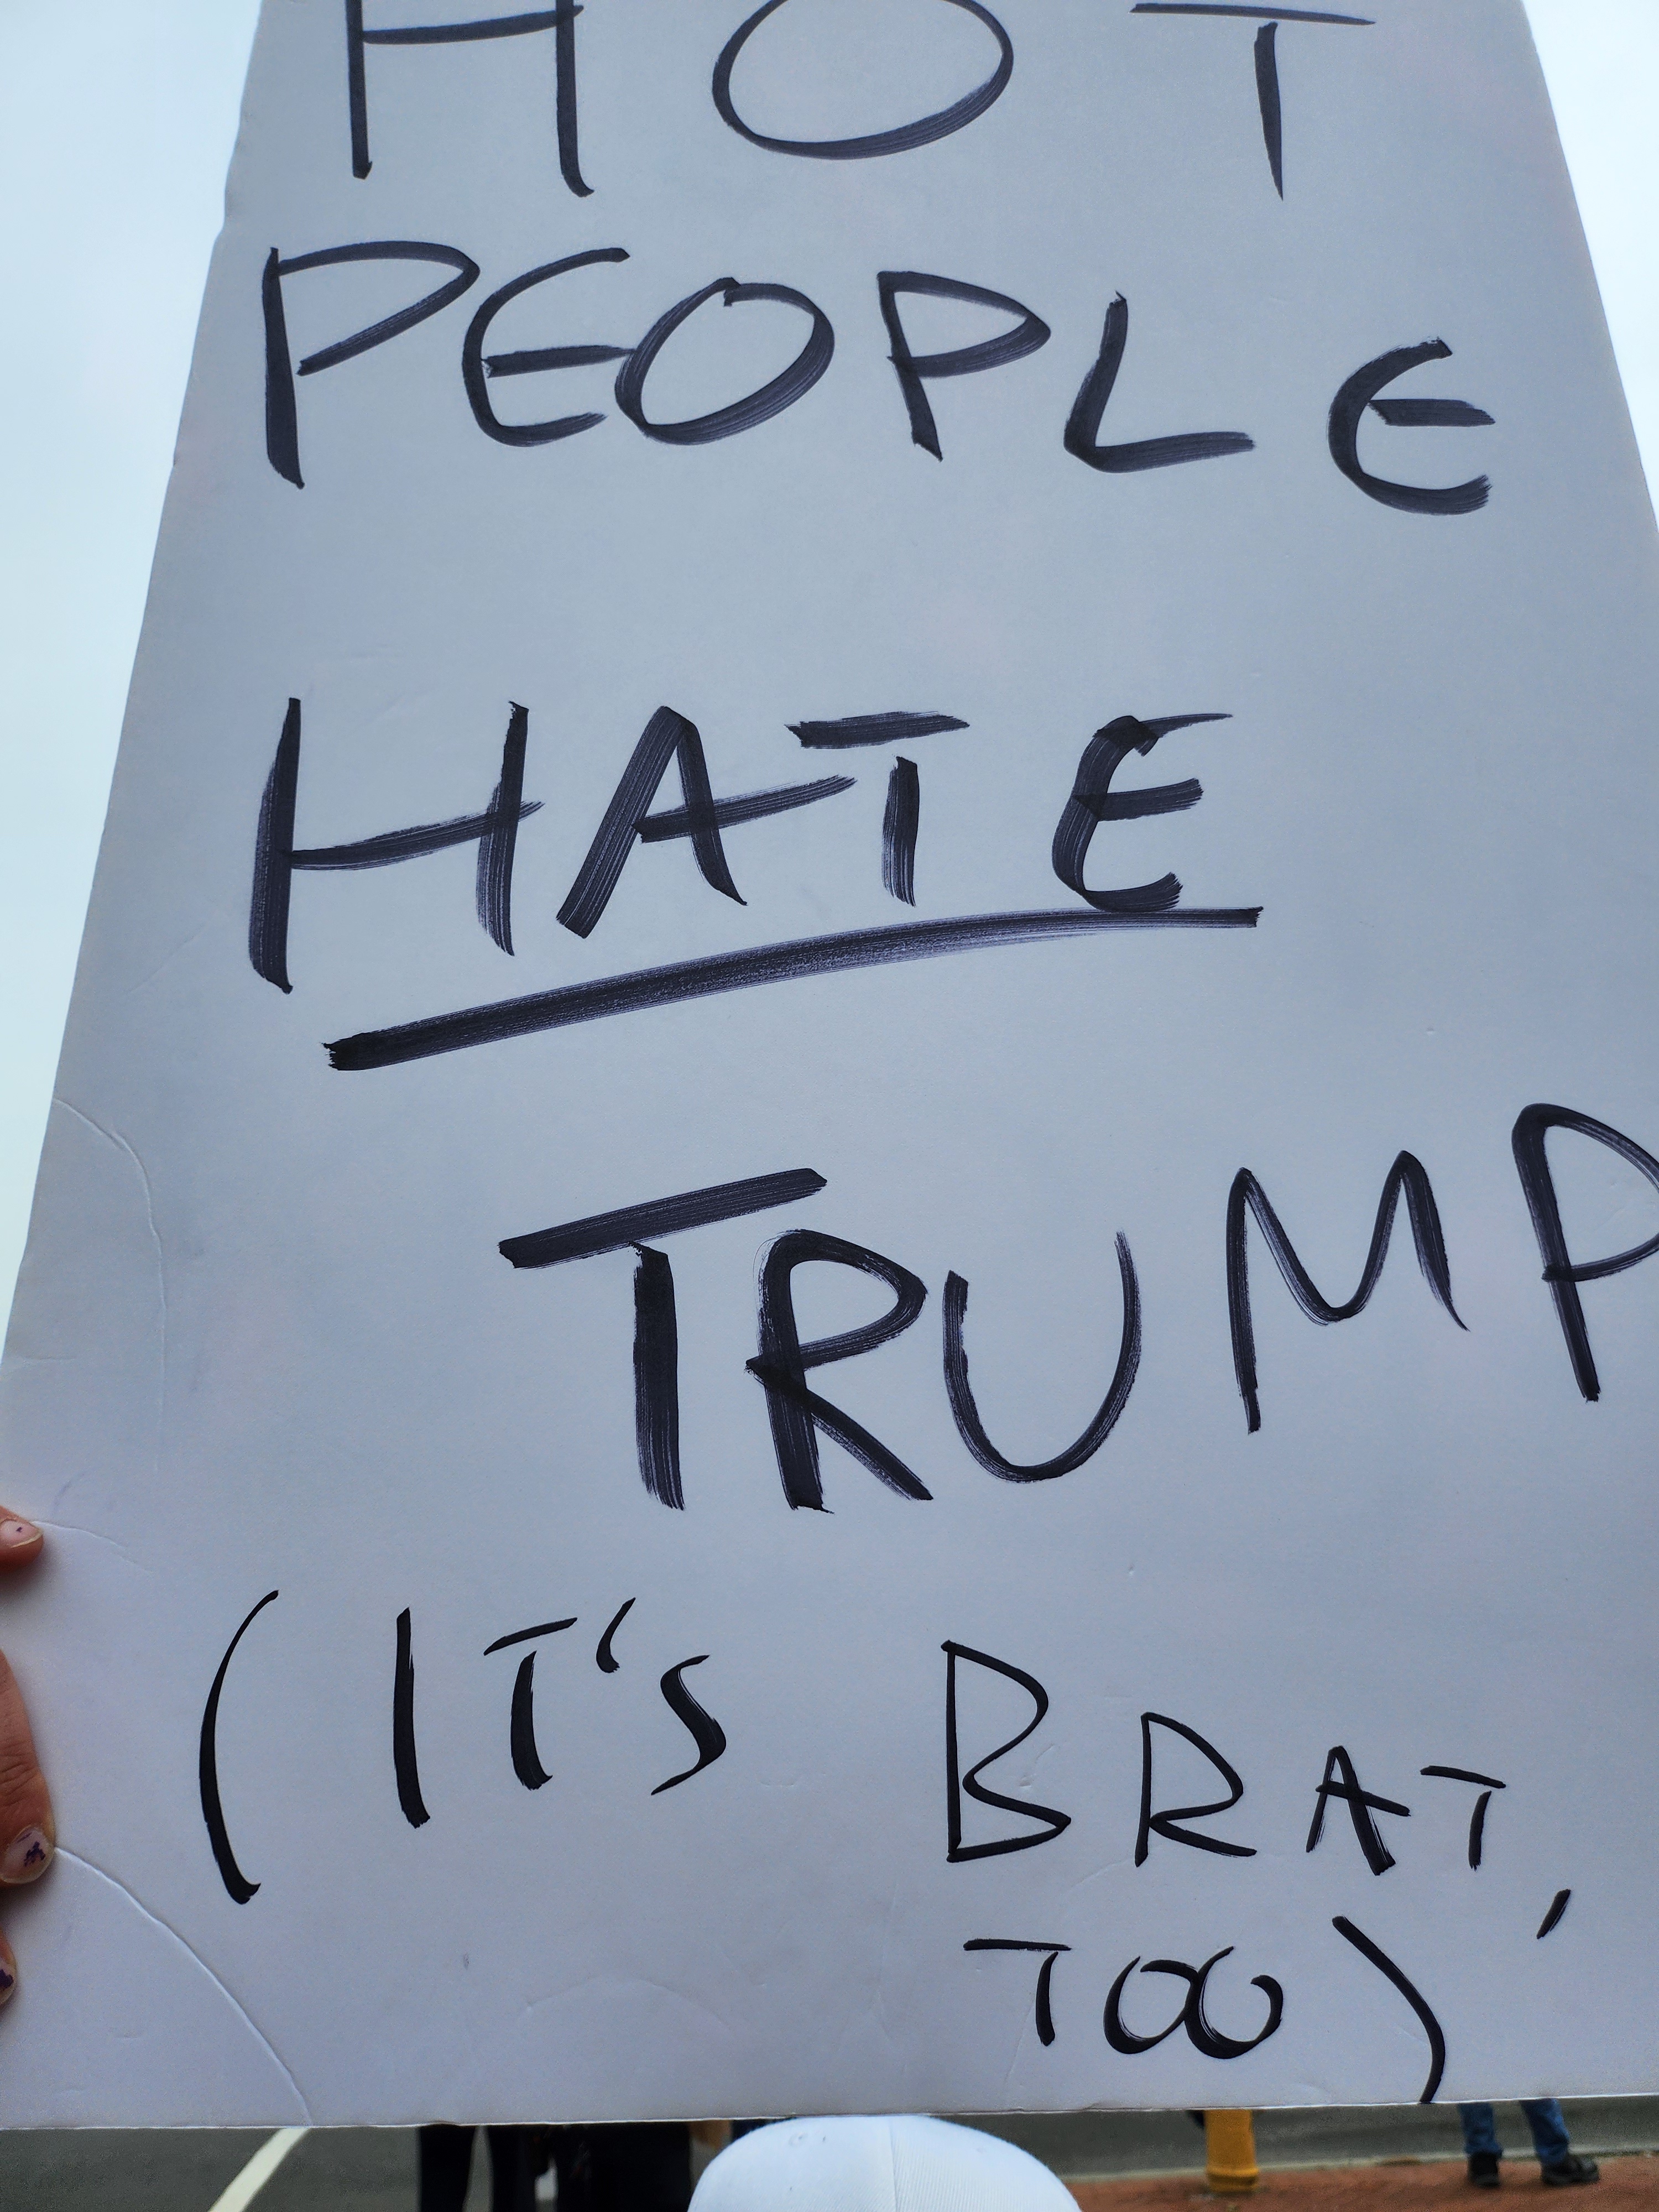 HOT
PEOPLE
HATE
TRUMP
(IT'S BRAT,
TOO)